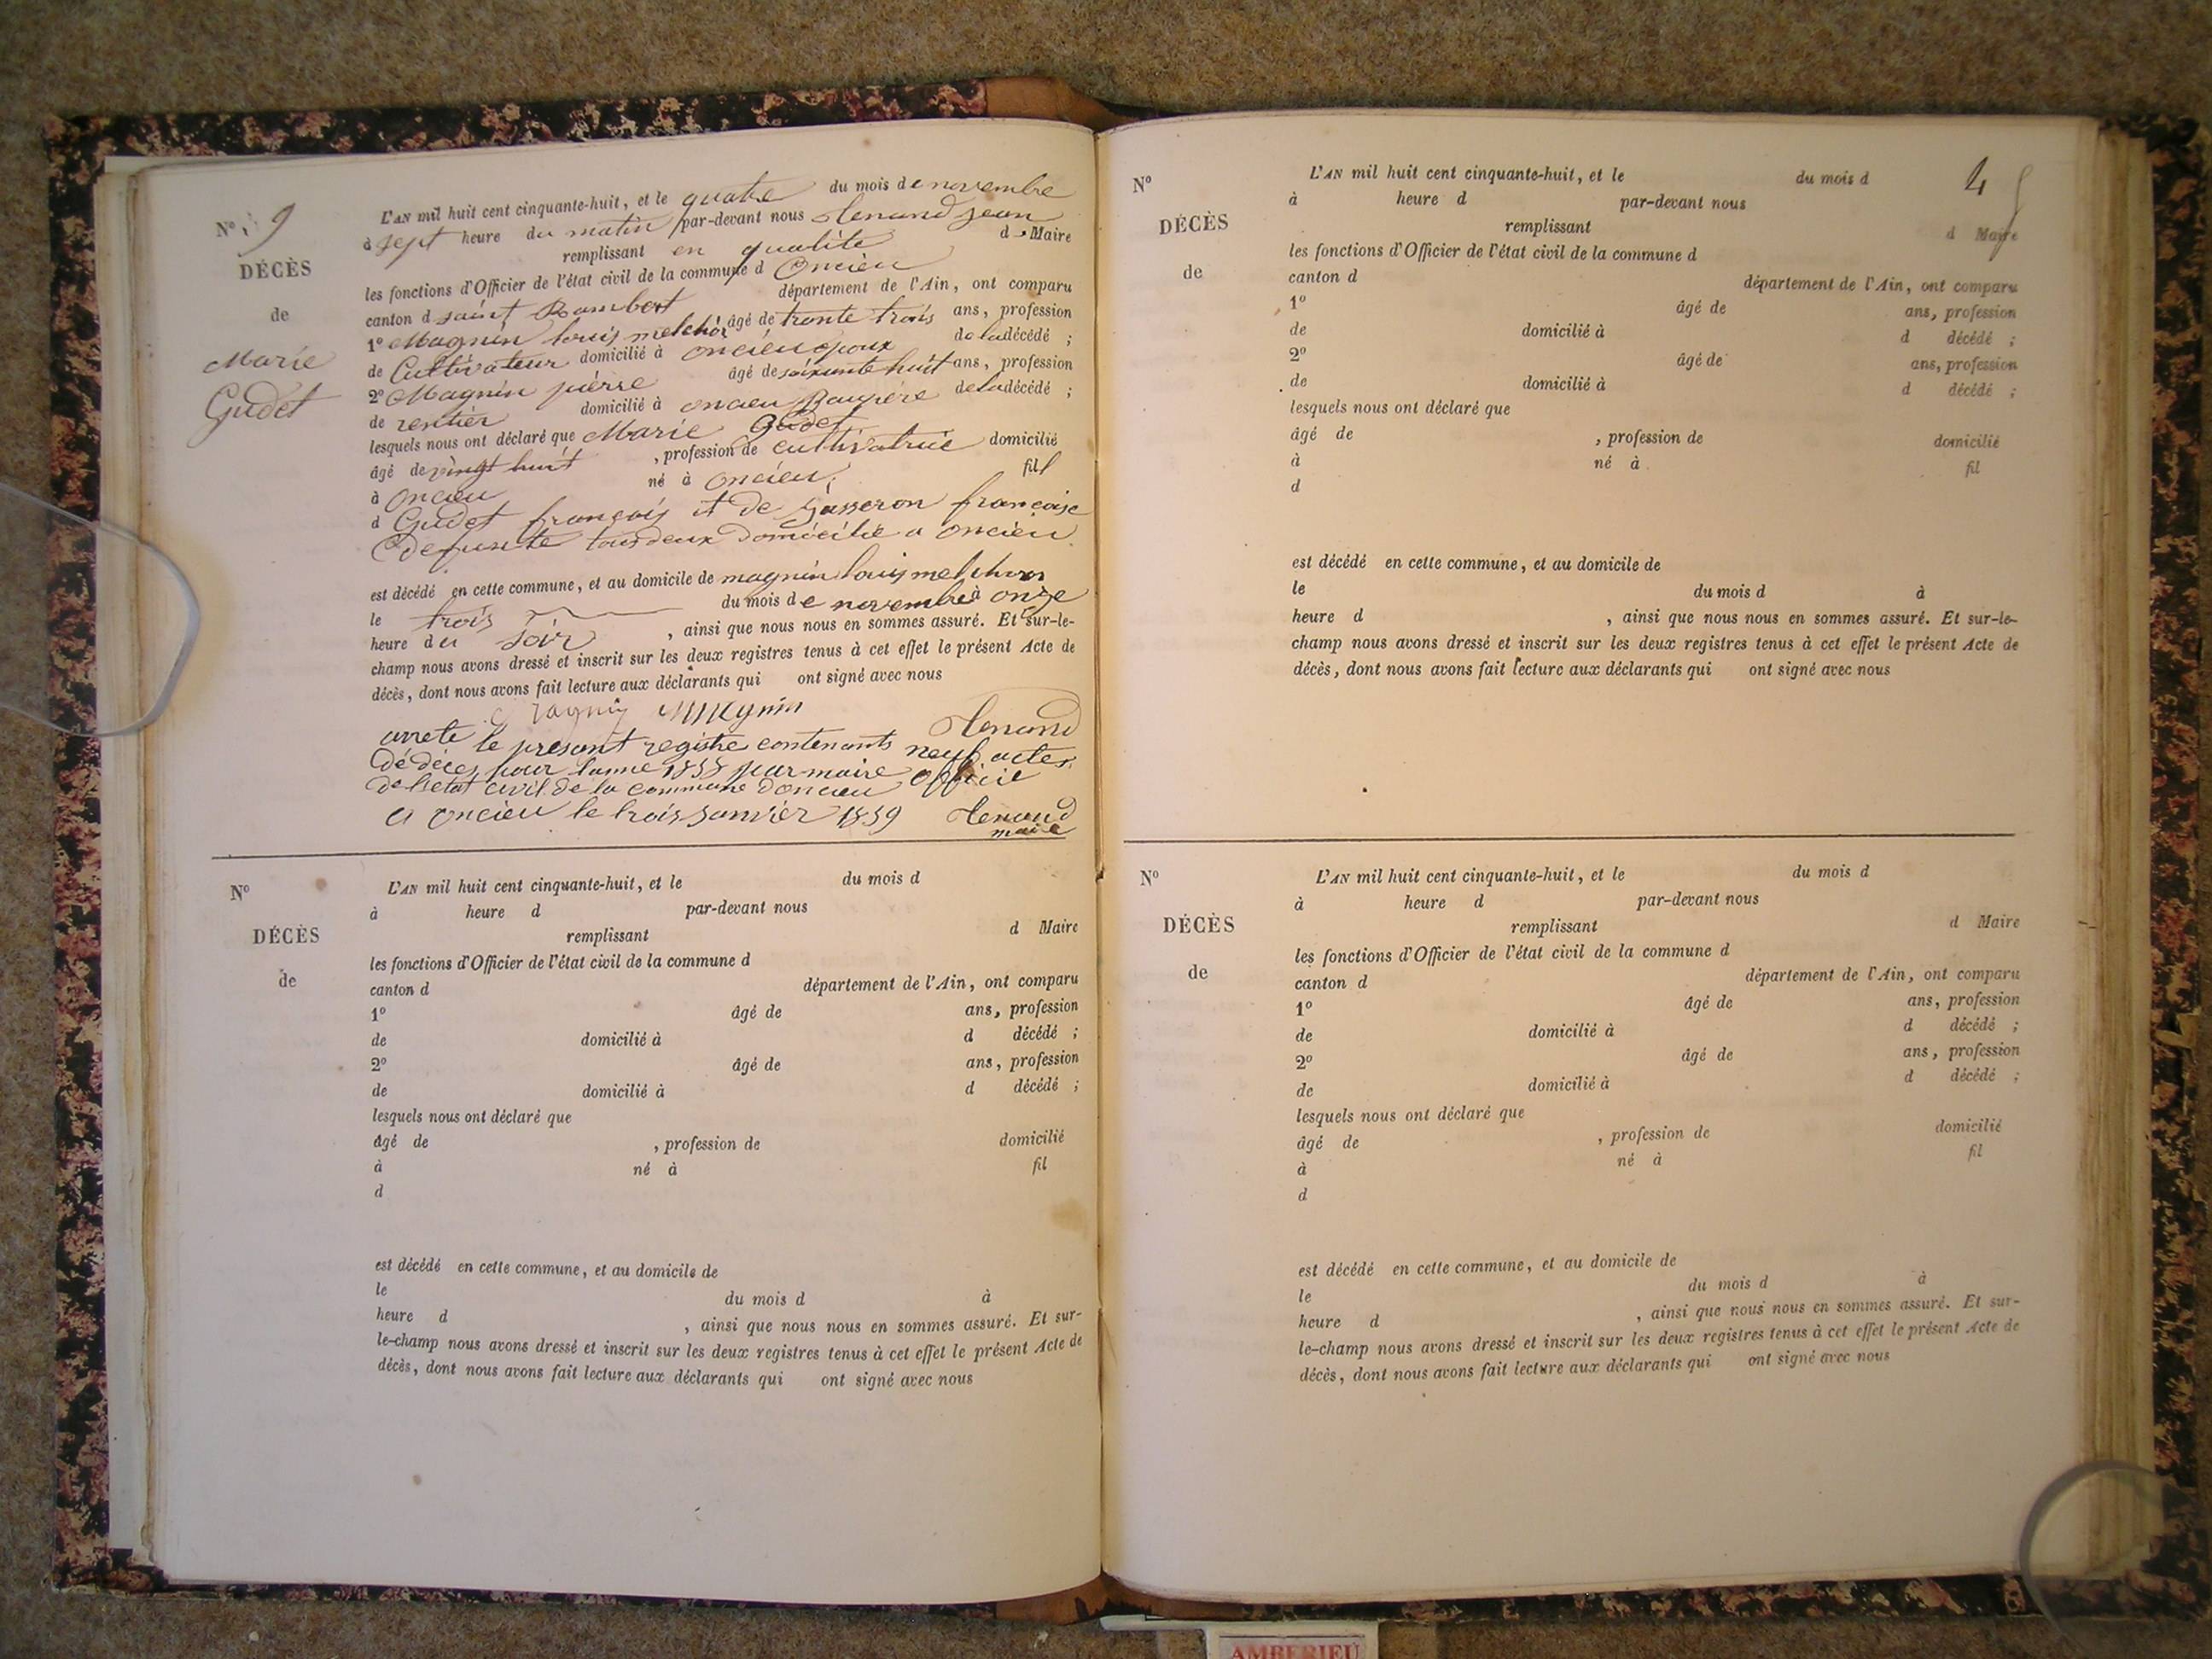 N° 9
DÉCÈS
de
Marie
Gudet
L'AN mil huit cent cinquante-huit, et le quatre du mois de novembre
à sept heure du matin par-devant nous Tenand jean
remplissant en qualité d Maire
les fonctions d'Officier de l'état civil de la commune d Oncieu
canton d saint Rambert département de l'Ain, ont comparu
1° Magnin louis melchior âgé de trente trois ans, profession
de Cultivateur domicilié à oncieu époux de la décédé ;
2° Magnin pierre âgé de soixante huit ans, profession
de rentier domicilié à oncieu Baupère de la décédé ;
lesquels nous ont déclaré que Marie Gudet
âgé de vingt huit , profession de cultivatrice domicilié
à oncieu né à oncieu, fil
d Gudet françois et de Gasseron françoise
Defunte tous deux domicilié a oncieu
est décédé en cette commune, et au domicile de magnin louis melchior
le trois du mois de novembre à onze
heure du soir , ainsi que nous nous en sommes assuré. Et sur-le-
champ nous avons dressé et inscrit sur les deux registres tenus à cet effet le présent Acte de
décès, dont nous avons fait lecture aux déclarants qui ont signé avec nous
Magnin Magnin Tenand
arrete le present registre contenants neuf actes
de déces pour lanne 1858 par maire officié
de l'etat civil de la commune doncieu
a oncieu le trois janvier 1859 Tenand
maire
N°
DÉCÈS
de
L'AN mil huit cent cinquante-huit, et le du mois d
à heure d par-devant nous
remplissant d Maire
les fonctions d'Officier de l'état civil de la commune d
canton d département de l'Ain, ont comparu
1° âgé de ans, profession
de domicilié à d décédé ;
2° âgé de ans, profession
de domicilié à d décédé ;
lesquels nous ont déclaré que
âgé de , profession de domicilié
à né à fil
d
est décédé en cette commune, et au domicile de
le du mois d à
heure d , ainsi que nous nous en sommes assuré. Et sur-
le-champ nous avons dressé et inscrit sur les deux registres tenus à cet effet le présent Acte de
décès, dont nous avons fait lecture aux déclarants qui ont signé avec nous
4
N°
DÉCÈS
de
L'AN mil huit cent cinquante-huit, et le du mois d
à heure d par-devant nous
remplissant d Maire
les fonctions d'Officier de l'état civil de la commune d
canton d département de l'Ain, ont comparu
1° âgé de ans, profession
de domicilié à d décédé ;
2° âgé de ans, profession
de domicilié à d décédé ;
lesquels nous ont déclaré que
âgé de , profession de domicilié
à né à fil
d
est décédé en cette commune, et au domicile de
le du mois d à
heure d , ainsi que nous nous en sommes assuré. Et sur-le-
champ nous avons dressé et inscrit sur les deux registres tenus à cet effet le présent Acte de
décès, dont nous avons fait lecture aux déclarants qui ont signé avec nous
N°
DÉCÈS
de
L'AN mil huit cent cinquante-huit, et le du mois d
à heure d par-devant nous
remplissant d Maire
les fonctions d'Officier de l'état civil de la commune d
canton d département de l'Ain, ont comparu
1° âgé de ans, profession
de domicilié à d décédé ;
2° âgé de ans, profession
de domicilié à d décédé ;
lesquels nous ont déclaré que
âgé de , profession de domicilié
à né à fil
d
est décédé en cette commune, et au domicile de
le du mois d à
heure d , ainsi que nous nous en sommes assuré. Et sur-
le-champ nous avons dressé et inscrit sur les deux registres tenus à cet effet le présent Acte de
décès, dont nous avons fait lecture aux déclarants qui ont signé avec nous
AMBERIEU